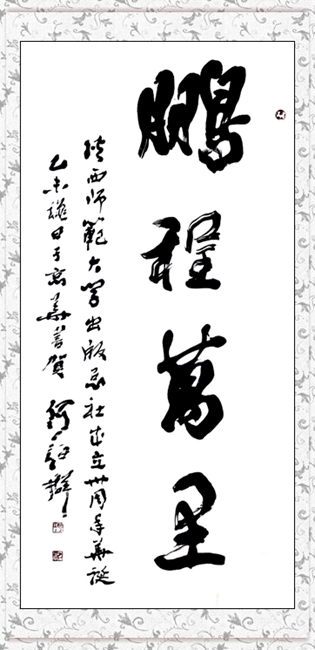 鵬程萬里
陝西师範大学出版总社成立卅周年華誕
乙未雄日于京華首賀 何